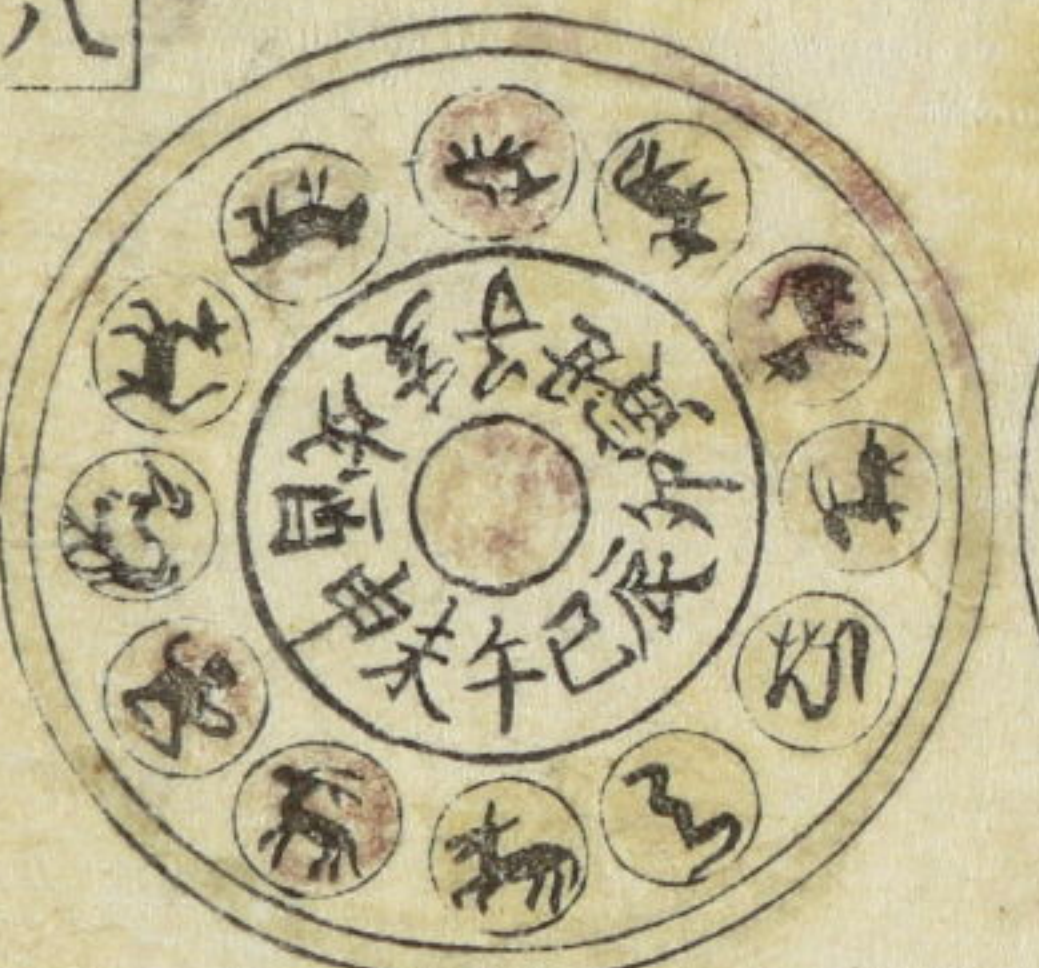 八
子丑寅卯辰巳午未申酉戌亥